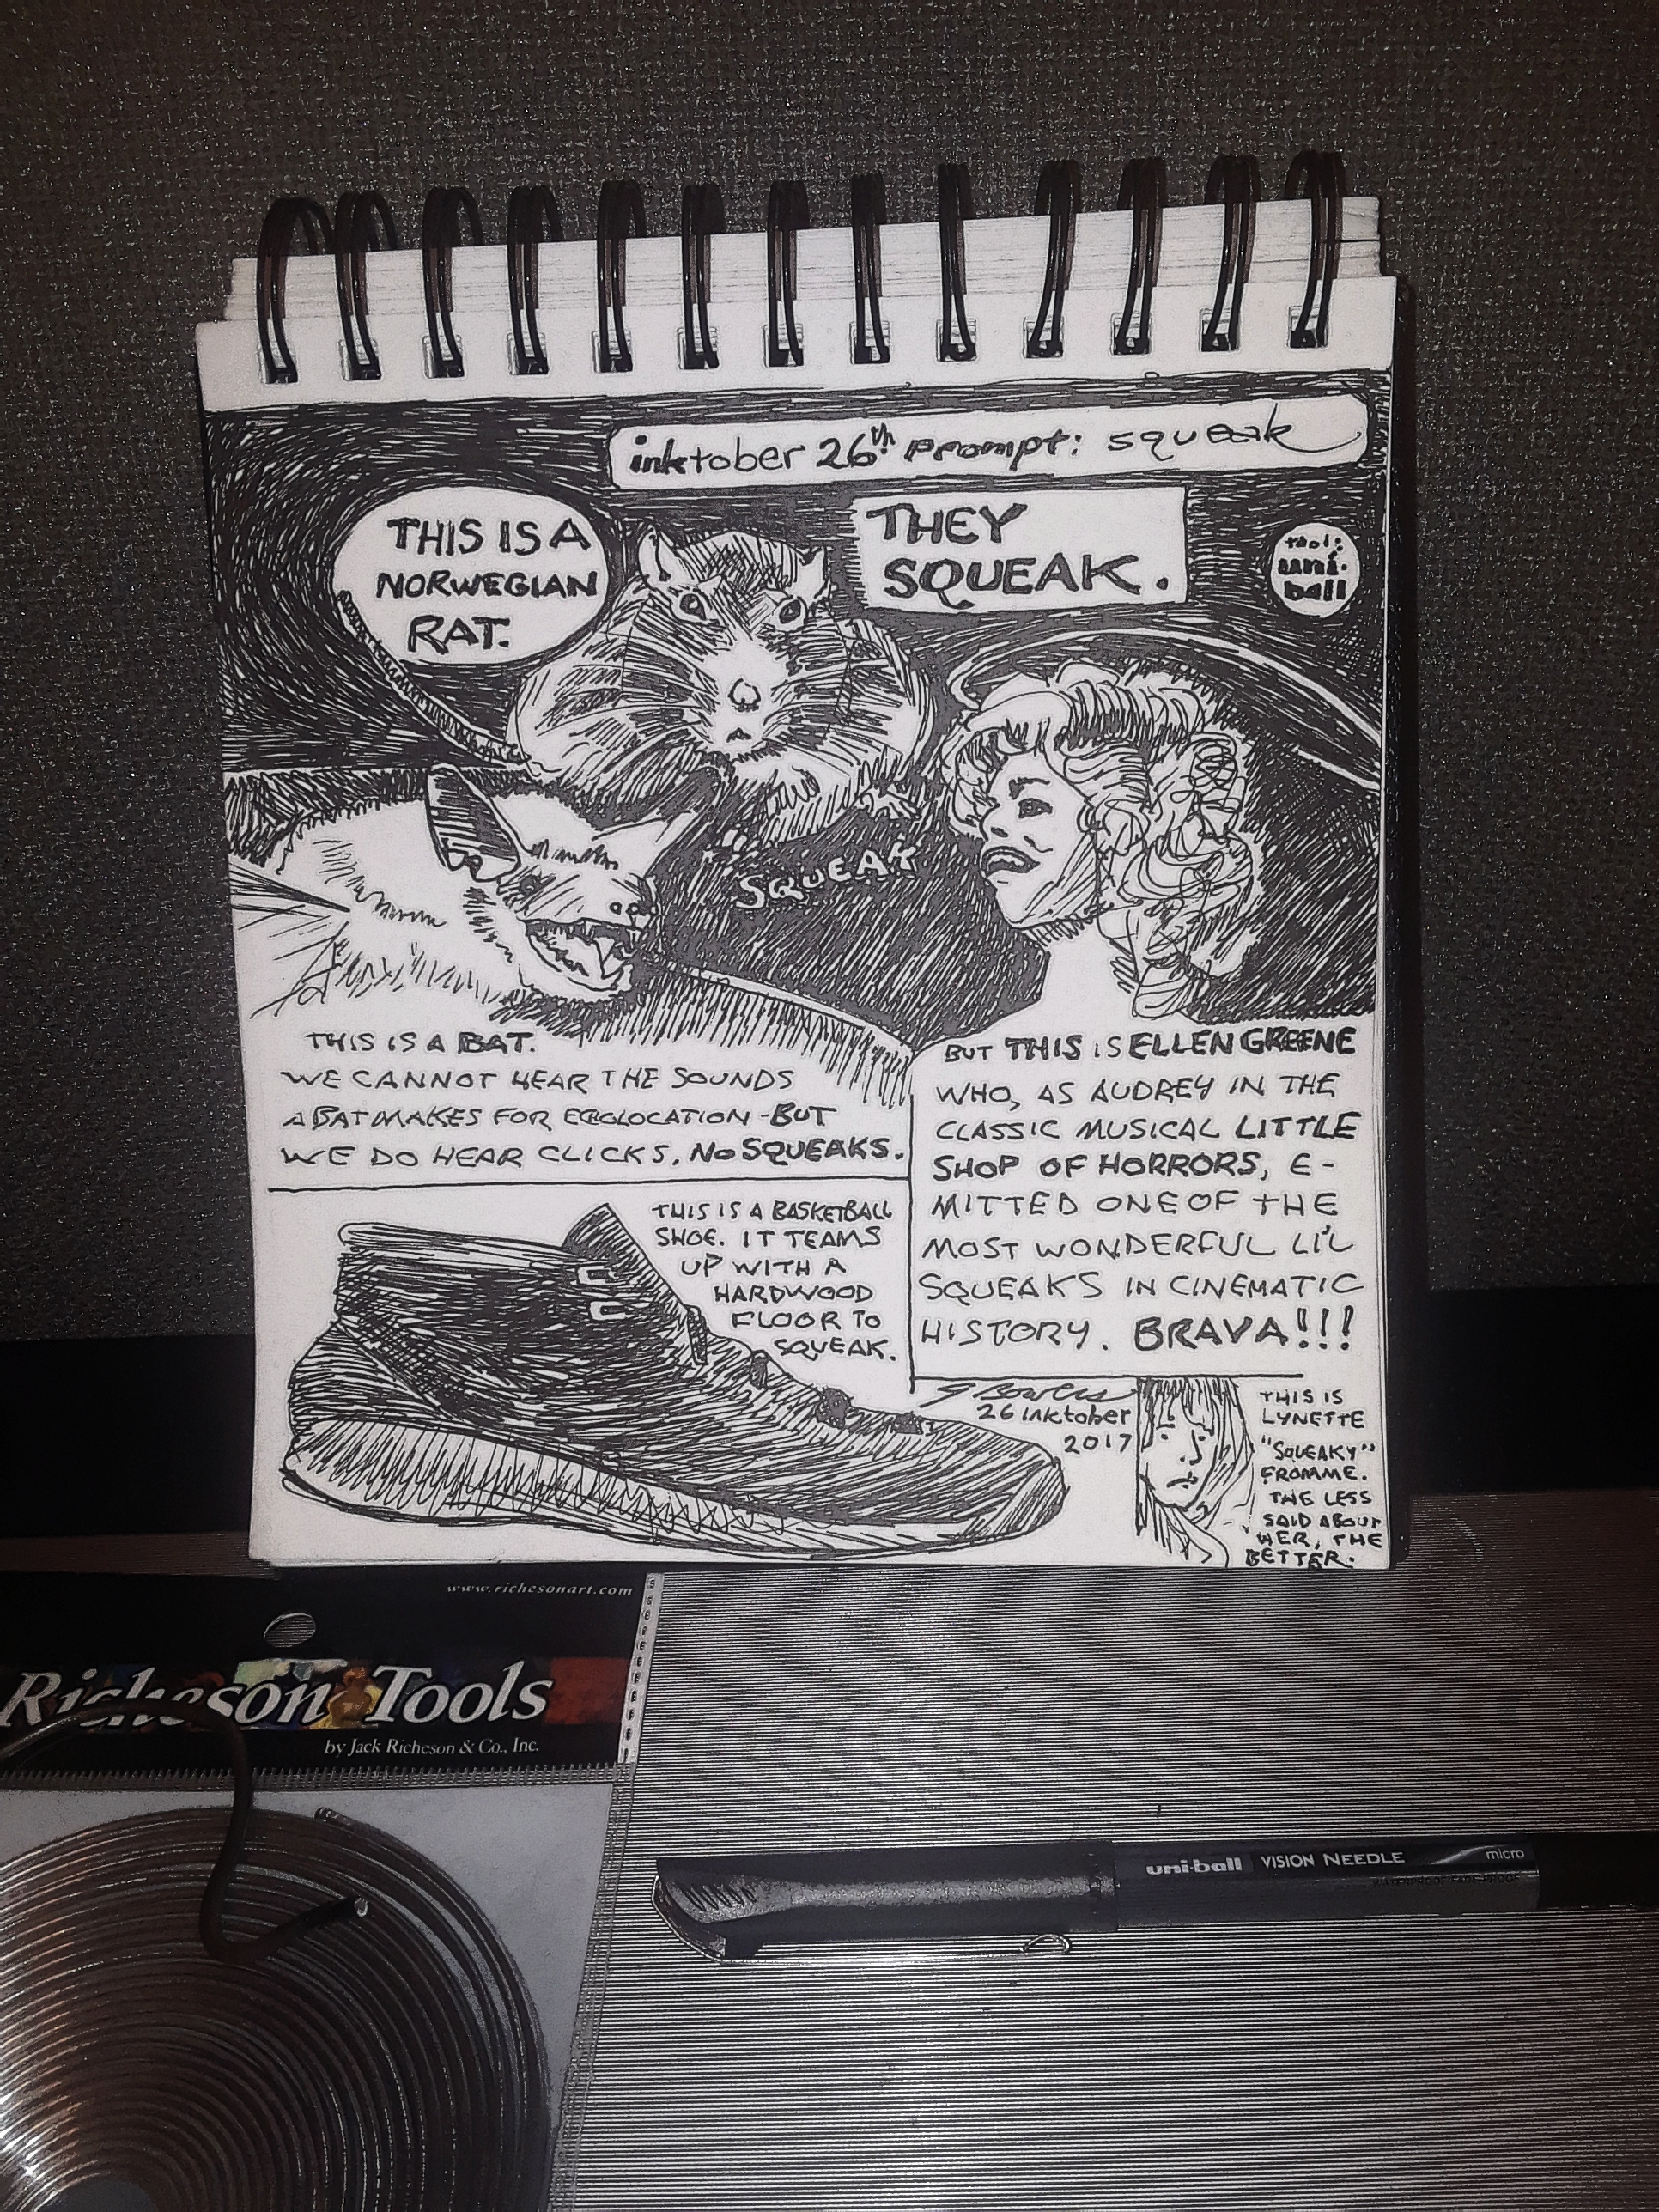 inktober 26th prompt: squeak
THIS IS A
NORWEGIAN
RAT.
THEY
SQUEAK.
tool:
uni-
ball
SQUEAK
THIS IS A BAT.
WE CANNOT HEAR THE SOUNDS
A BAT MAKES FOR ECHOLOCATION - BUT
WE DO HEAR CLICKS. NO SQUEAKS.
BUT THIS IS ELLEN GREENE
WHO, AS AUDREY IN THE
CLASSIC MUSICAL LITTLE
SHOP OF HORRORS, E-
MITTED ONE OF THE
MOST WONDERFUL LI'L
SQUEAKS IN CINEMATIC
HISTORY. BRAVA!!!
THIS IS A BASKETBALL
SHOE. IT TEAMS
UP WITH A
HARDWOOD
FLOOR TO
SQUEAK.
G Bowers
26 inktober
2017
THIS IS
LYNETTE
"SQUEAKY"
FROMME.
THE LESS
SAID ABOUT
HER, THE
BETTER.
www.richesonart.com
Richeson Tools
by Jack Richeson & Co., Inc.
uni-ball VISION NEEDLE micro